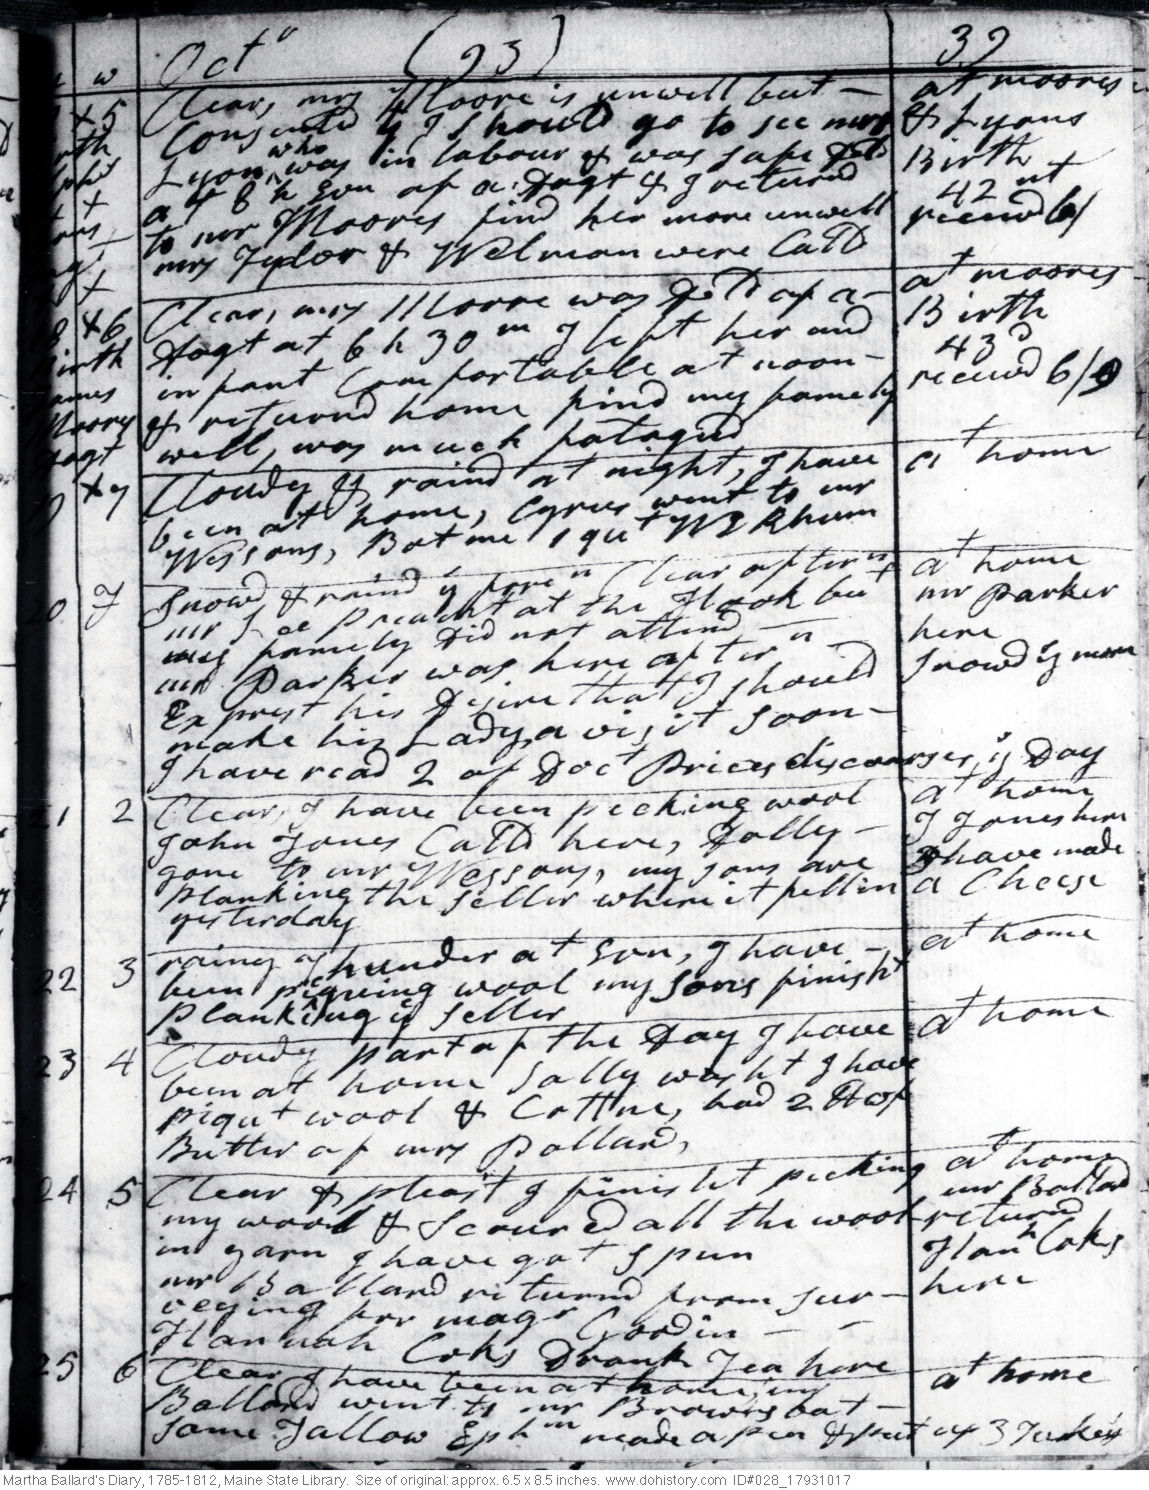 Oct r (93) 39
w
x 5 Clear, mrs Moore is unwell but – at moores
Consented yt I should go to see mrs & Lyons
Lyon who was in labour & was safe Dld Birth
at 8 h Evn of a Dagt & I returnd 42 nt
to mr Moores find her more unwell receivd 6/
mrs Tylor & Welman were Calld
x 6 Clear, mrs Moore was Deld of a – at moores
Birth Dagt at 6 h 30 m I left her and Birth
infant Comfortable at noon – 43d
Moors & returnd home find my famely receivd 6/9
Dagt well, was much fatagud
x 7 Cloudy & raind at night, I have at home
been at home, Cyrus went to mr
Wessons, Bot me 1 qut WI Rhum
20 F Snowd & raind ye foren n Clear after n at home
mr Lee preacht at the Hook but mr Parker
my famely Did not attend – here
mr Parker was here after n – Snowd ys morn
Exprest his Desire that I should
make his Lady a visit soon –
I have read 2 of Doct Prices discourses ys Day
21 2 Clear, I have been pecking wool at home
John Jones Calld here, Dolly – J Jones here
gone to mr Wessons, my sons are I have made
planking the sellar where it fell in a Cheese
yesterday
22 3 rainy & thunder at Evn, I have – at home
been piquing wool my sons finisht
planking ye seller
23 4 Cloudy part of the Day I have at home
been at home Sally washt I have
piqut wool & Cottne, had 2 lb of
Butter of mrs Pollard,
24 5 Clear & pleast I finisht pecking at home
my wool & Scoured all the wool mr Ballard
in yarn I have got spun returnd
mr Ballard returnd from sur – Hanh Coks
veying for magr Goodin – – here
Hannah Coks Drank Tea here
25 6 Clear I have been at home, mr at home
Ballard went to mr Browns bot –
some Tallow Ephm made a pen & put up 3 Turkeys
Martha Ballard's Diary, 1785-1812, Maine State Library. Size of original: approx. 6.5 x 8.5 inches. www.dohistory.com ID#028_17931017